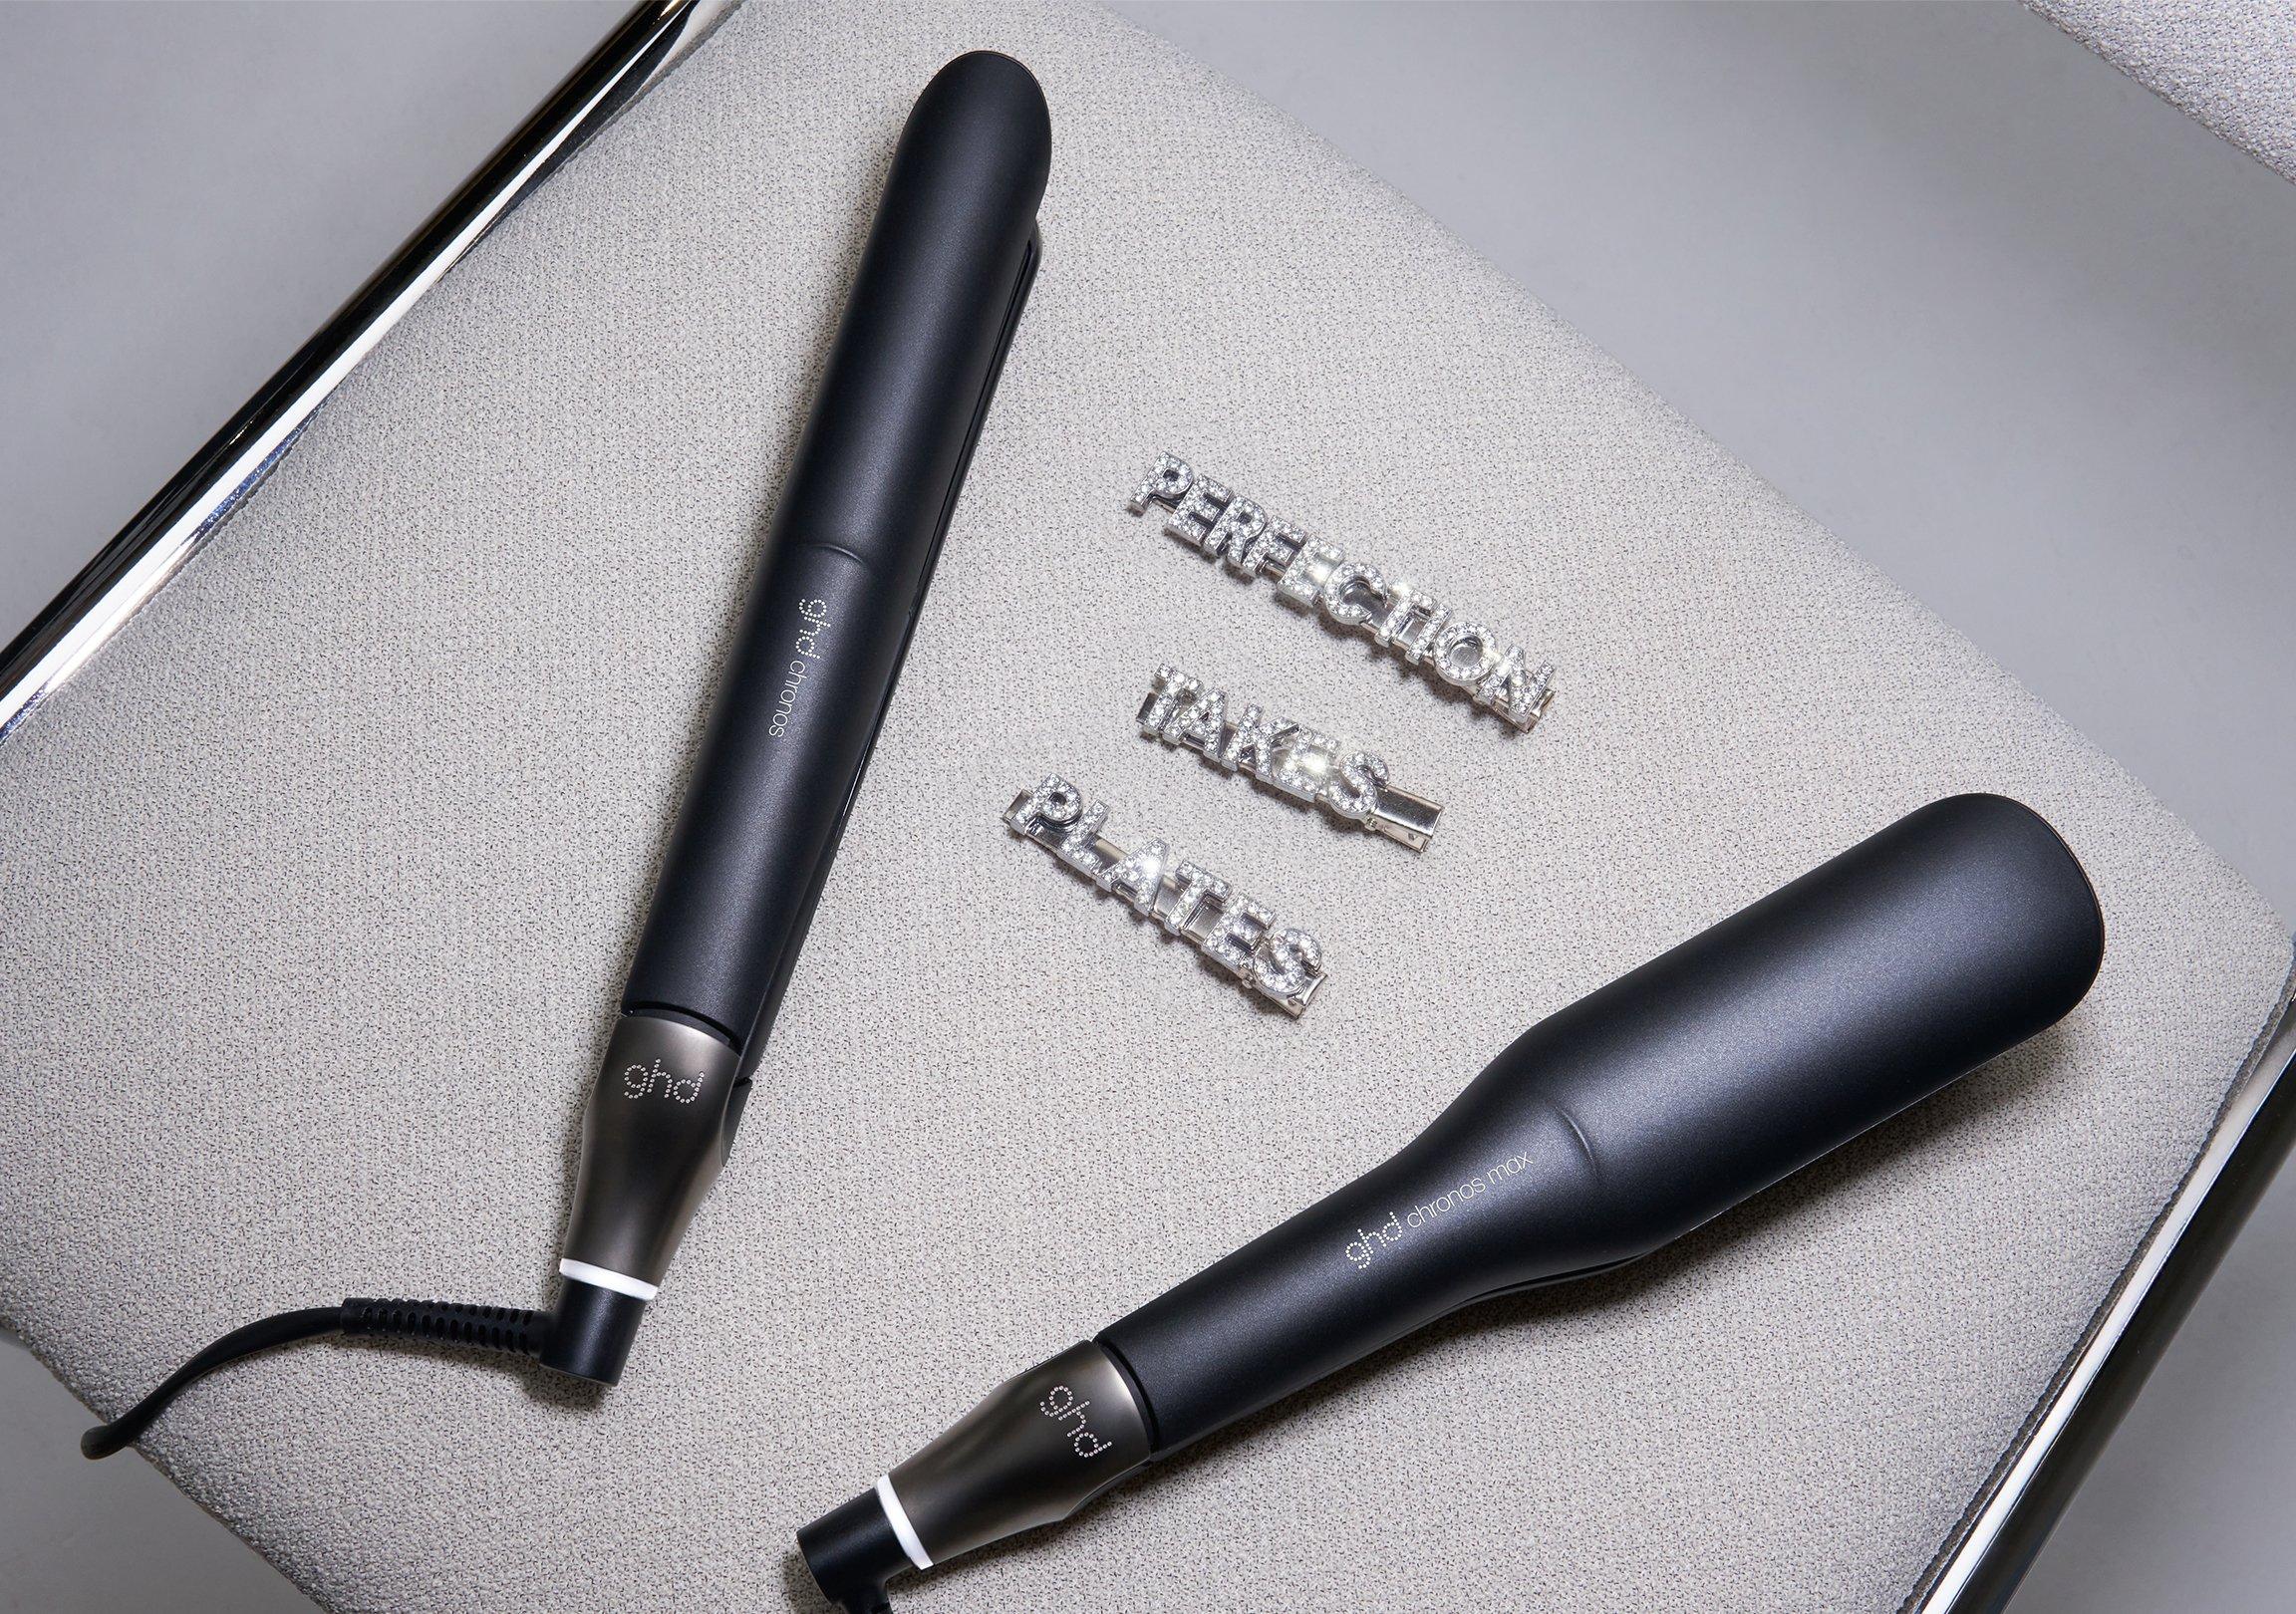 ghd chronos
ghd
PERFECTION
TAKES
PLATES
ghd chronos max
ghd